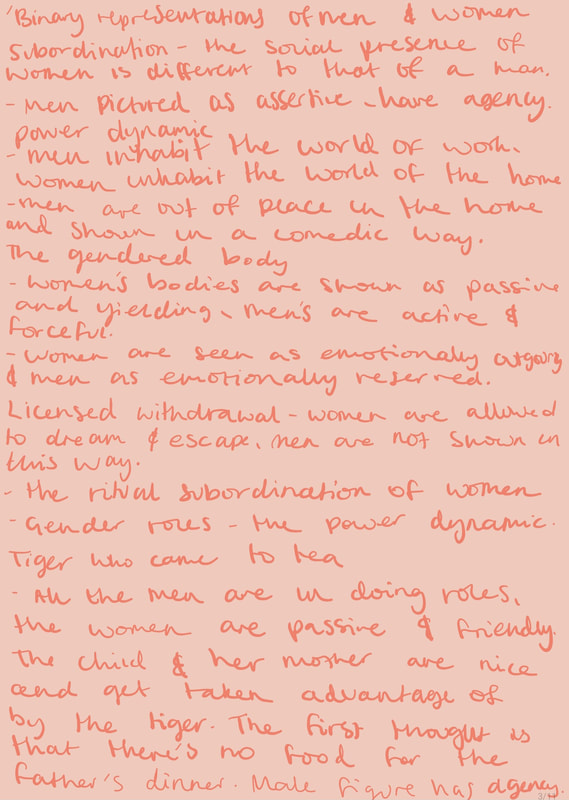 'Binary representations of men & women
subordination - the social presence of
women is different to that of a man.
- men pictured as assertive, have agency.
power dynamic
- men inhabit the world of work.
women inhabit the world of the home
- men are out of place in the home
and shown in a comedic way.
The gendered body
- women's bodies are shown as passive
and yielding, men's are active &
forceful.
- women are seen as emotionally outgoing
& men as emotionally reserved.
Licensed withdrawal - women are allowed
to dream & escape, men are not shown in
this way.
- the ritual subordination of women
- Gender roles - the power dynamic.
Tiger who came to tea
- All the men are in doing roles,
the women are passive & friendly.
The child & her mother are nice
and get taken advantage of
by the tiger. The first thought is
that there's no food for the
father's dinner. Male figure has agency.